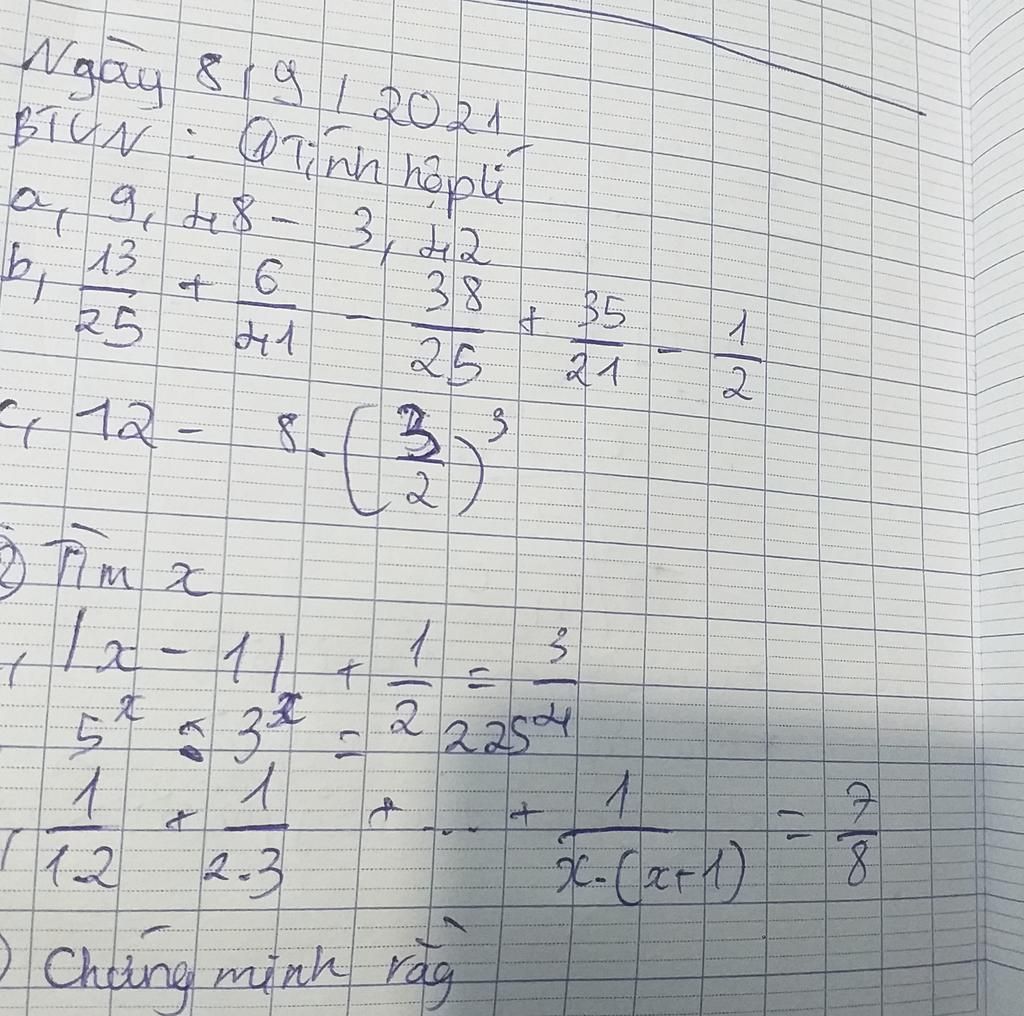 Ngày 8/9/2021
BTVN: ① Tính hợp lí
a, 9,48 - 3,42
b, 13/25 + 6/41 - 38/25 + 35/21 - 1/2
c, 12 - 8.(3/2)³
2) Tìm x
, |x - 1| + 1/2 = 3/4
5ˣ : 3ˣ = 225
1/1.2 + 1/2.3 + ... + 1/x.(x+1) = 7/8
) Chứng minh rằg